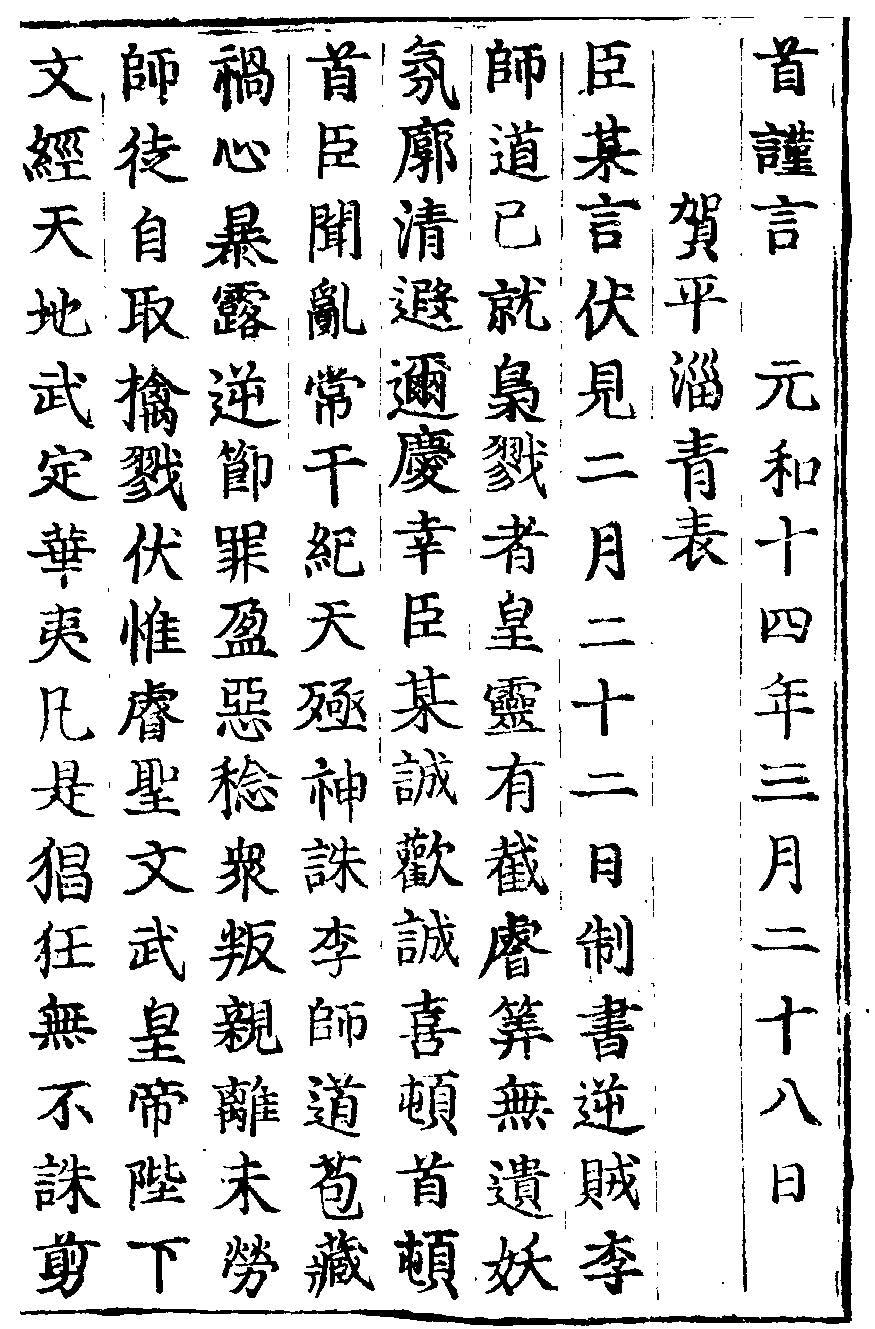 首謹言　元和十四年三月二十八日
賀平淄青表
臣某言伏見二月二十二日制書逆賊李
師道已就梟戮者皇靈有截睿筭無遺妖
氛廓清遐邇慶幸臣某誠歡誠喜頓首頓
首臣聞亂常干紀天殛神誅李師道苞藏
禍心暴露逆節罪盈惡稔衆叛親離未勞
師徒自取擒戮伏惟睿聖文武皇帝陛下
文經天地武定華夷凡是猖狂無不誅剪